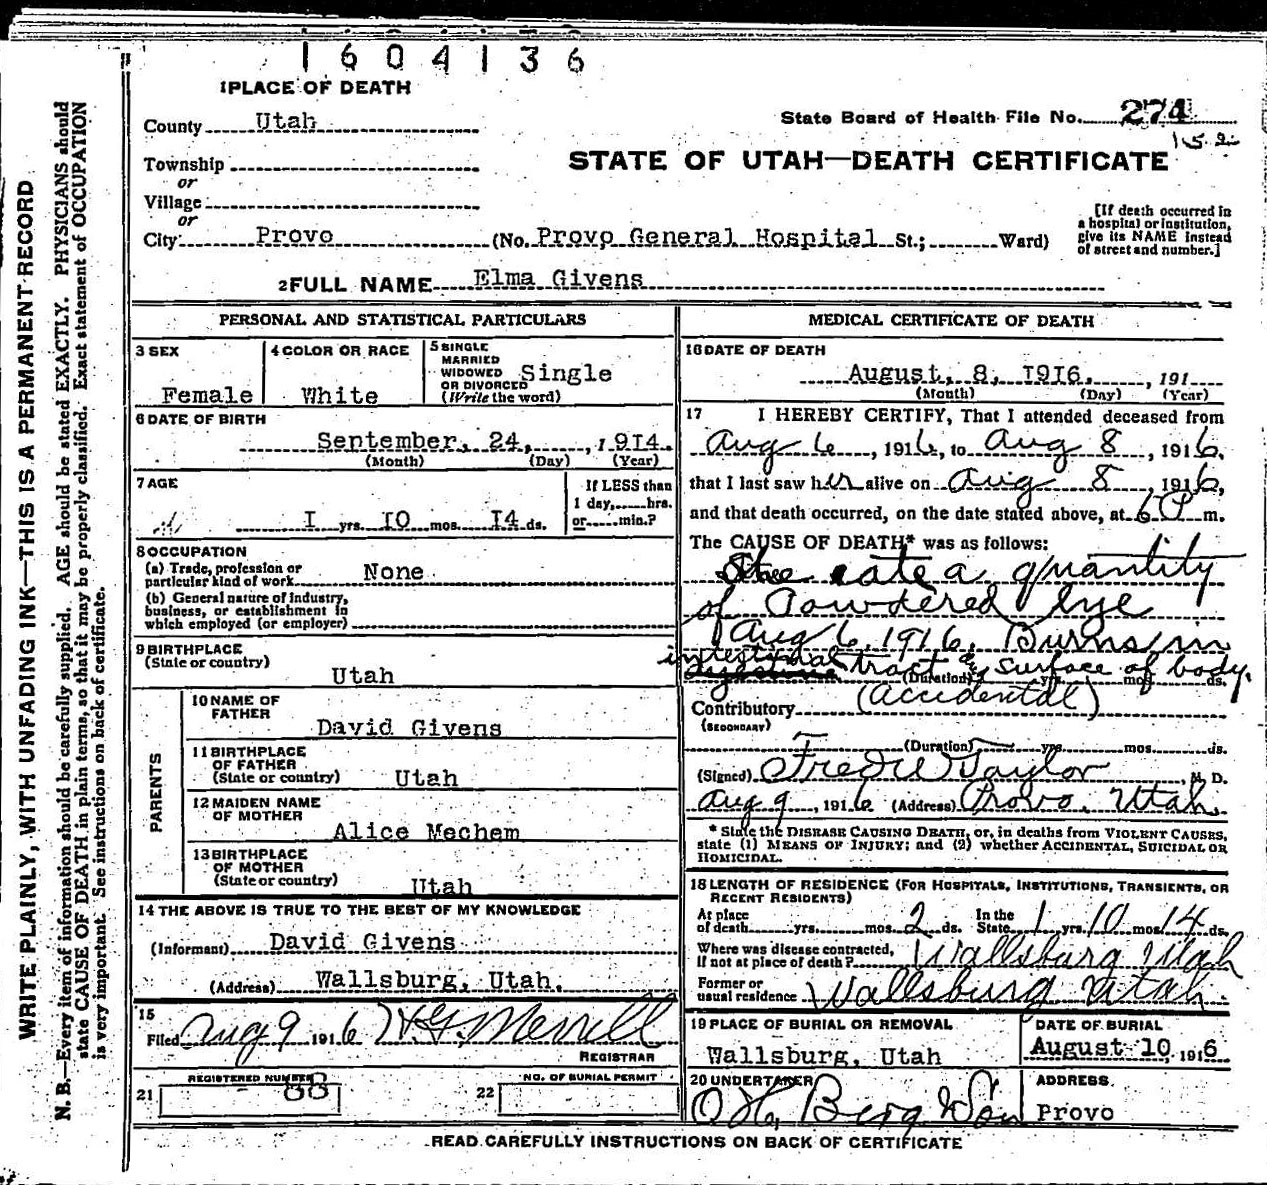 1604136
1 PLACE OF DEATH
County Utah
State Board of Health File No. 274
152
Township
or
Village
or
STATE OF UTAH—DEATH CERTIFICATE
City Provo (No. Provo General Hospital St.; Ward)
[If death occurred in
a hospital or institution,
give its NAME instead
of street and number.]
2 FULL NAME Elma Givens
PERSONAL AND STATISTICAL PARTICULARS
3 SEX
Female
4 COLOR OR RACE
White
5 SINGLE
MARRIED
WIDOWED
OR DIVORCED
(Write the word)
Single
6 DATE OF BIRTH
September, 24, , 1914.
(Month) (Day) (Year)
7 AGE
1 yrs. 10 mos. 14 ds.
If LESS than
1 day, hrs.
or min.?
8 OCCUPATION
(a) Trade, profession or
particular kind of work None
(b) General nature of industry,
business, or establishment in
which employed (or employer)
9 BIRTHPLACE
(State or country)
Utah
PARENTS
10 NAME OF
FATHER
David Givens
11 BIRTHPLACE
OF FATHER
(State or country) Utah
12 MAIDEN NAME
OF MOTHER
Alice Mechem
13 BIRTHPLACE
OF MOTHER
(State or country) Utah
14 THE ABOVE IS TRUE TO THE BEST OF MY KNOWLEDGE
(Informant) David Givens
(Address) Wallsburg, Utah.
15
Filed Aug 9 1916 H.G. Merrill
REGISTRAR
21 REGISTERED NUMBER
88
22 NO. OF BURIAL PERMIT
MEDICAL CERTIFICATE OF DEATH
16 DATE OF DEATH
August, 8, 1916. , 191
(Month) (Day) (Year)
17 I HEREBY CERTIFY, That I attended deceased from
Aug 6 , 1916, to Aug 8 , 1916,
that I last saw her alive on Aug 8 , 1916,
and that death occurred, on the date stated above, at 6 P m.
The CAUSE OF DEATH* was as follows:
She ate a quantity
of Powdered lye
Aug 6 1916, Burns in
intestinal tract & surface of body.
(Duration) yrs. mos. ds.
Contributory (accidental)
(SECONDARY)
(Duration) yrs. mos. ds.
(Signed) Fred W Taylor , M. D.
Aug 9 , 1916 (Address) Provo, Utah.
* State the DISEASE CAUSING DEATH, or, in deaths from VIOLENT CAUSES,
state (1) MEANS OF INJURY; and (2) whether ACCIDENTAL, SUICIDAL OR
HOMICIDAL.
18 LENGTH OF RESIDENCE (FOR HOSPITALS, INSTITUTIONS, TRANSIENTS, OR
RECENT RESIDENTS)
At place
of death yrs. mos. 2 ds. In the
State 1 yrs. 10 mos. 14 ds.
Where was disease contracted,
If not at place of death? Wallsburg Utah
Former or
usual residence Wallsburg Utah.
19 PLACE OF BURIAL OR REMOVAL
Wallsburg, Utah
DATE OF BURIAL
August 10 1916
20 UNDERTAKER
O H, Berg & Son
ADDRESS
Provo
READ CAREFULLY INSTRUCTIONS ON BACK OF CERTIFICATE
WRITE PLAINLY, WITH UNFADING INK—THIS IS A PERMANENT RECORD
N. B.—Every item of information should be carefully supplied. AGE should be stated EXACTLY. PHYSICIANS should
state CAUSE OF DEATH in plain terms, so that it may be properly classified. Exact statement of OCCUPATION
is very important. See instructions on back of certificate.